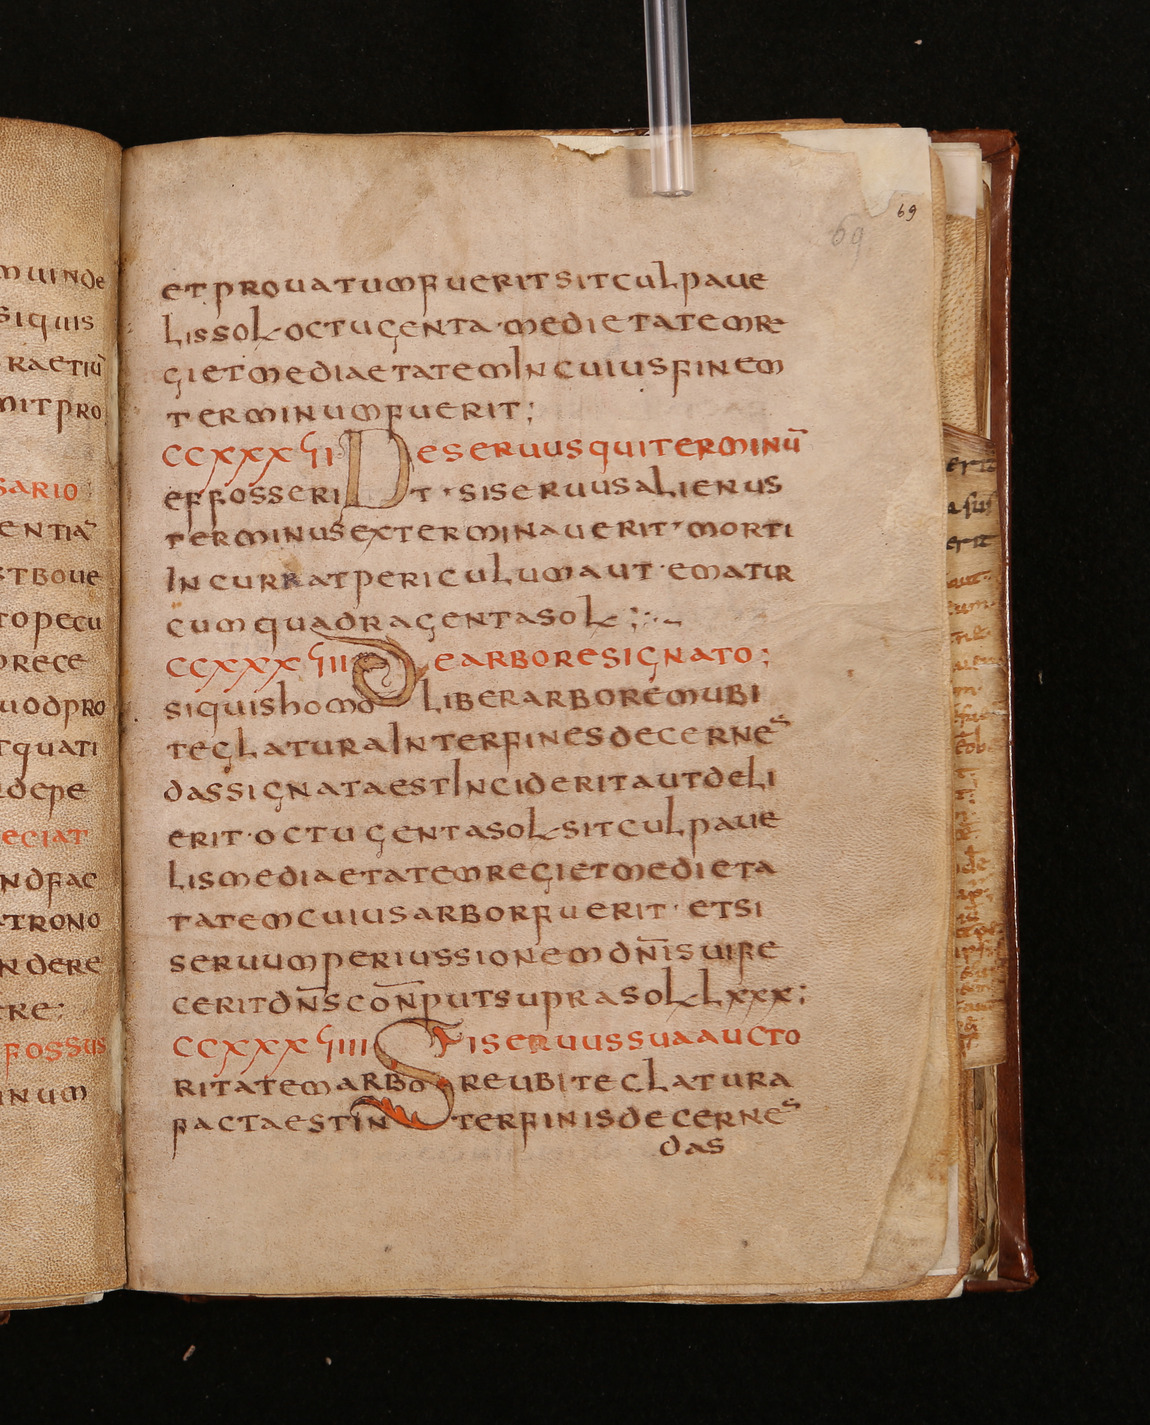 muinde
siquis
raetiū
mitpro
sario
entiā
stboue
topecu
prece
uodpro
tquati
depe
eciat
ndfac
trono
ndere
ere;
fossus
inum
69
69
etprouatumfueritsitculpaue
lissol octugenta·medietatemre
gietmediaetateminCuiusfinem
terminumfuerit;
CCXXXҁII Deseruusquiterminū
effosserit · siseruusalienus
terminusexterminauerit·morti
incurratpericulumaut·ematur
cumquadragentasol ;·
CCXXXҁIII Dearboresignato;
siquishomo liberarboremubi
teclaturainterfinesdecernes
dassignataestinciderit autdeli
erit·octugentasol sitculpaue
lismediaetatemregietmedieta
tatemcuiusarborfuerit·etsi
seruumperiussionemdn̄isuife
ceritdn̄scon̄putsuprasol lxxx;
CCXXXҁIIII Siseruussuaaucto
ritatemarboreubiteclatura
factaestinterfinisdecernes
das